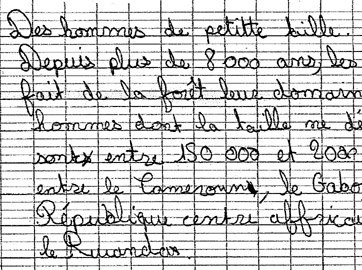 Des hommes de petitte taille.
Depuis plus de 8 000 ans, les
fait de la forêt leur domain
hommes dont la taille ne dé
sont entre 150 000 et 2000
entre le Cameroun, le Gabo
République centre affricai
le Ruandas.